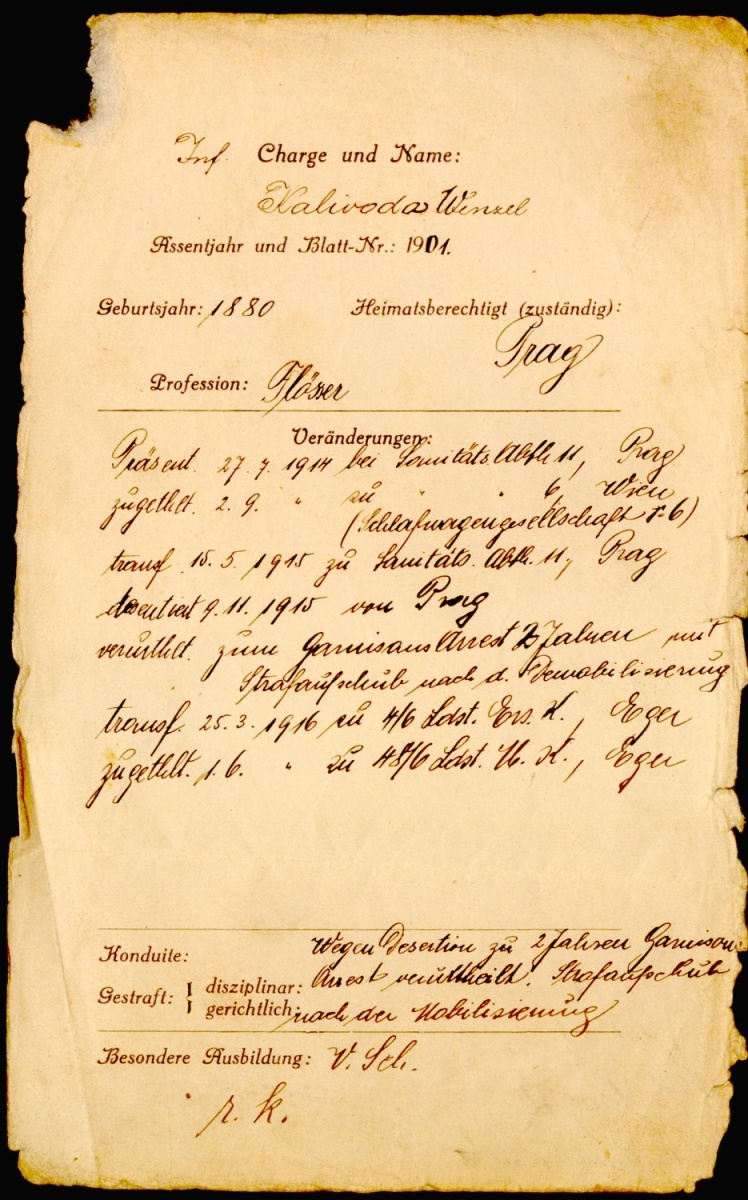 Inf. Charge und Name:
Kalivoda Wenzel
Assentjahr und Blatt-Nr.: 1901.
Geburtsjahr: 1880 Heimatsberechtigt (zuständig):
Prag
Profession: Flösser
Veränderungen:
Präsent. 27. 7. 1914 bei Sanitäts. Abth. 11, Prag
zugethlt. 2. 9. " zu " " 6, Wien
(Schlafwagengesellschaft 6)
transf. 15. 5. 1915 zu Sanitäts. Abth. 11, Prag
desertiert 9. 11. 1915 von Prag
verurthlt. zum Garnisons Arrest 2 Jahren mit
Strafaufschub nach d. Demobilisierung
transf. 25. 3. 1916 zu 4/6 Ldst. Ers. K., Eger
zugethlt. 1. 6. " zu 48/6 Ldst. K., Eger
Konduite: Wegen Desertion zu 2 Jahren Garnison
Gestraft: { disziplinar: Arrest verurtheilt. Strafaufschub
gerichtlich: nach der Mobilisierung
Besondere Ausbildung: V. Sch.
r. k.